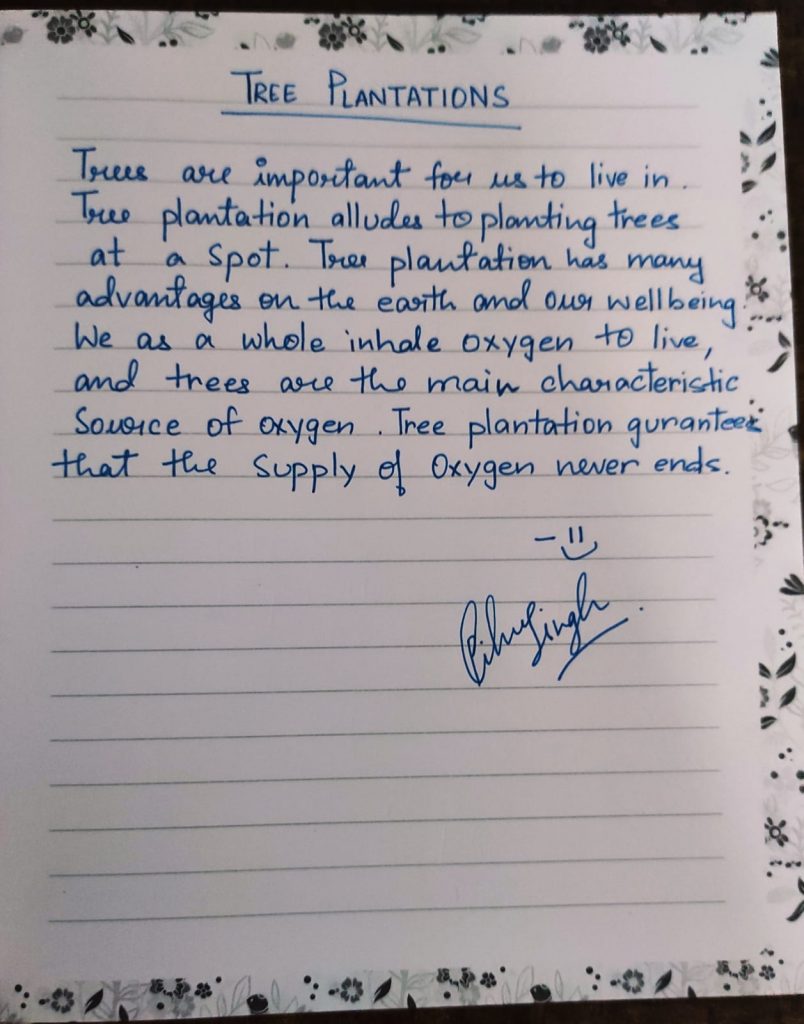 TREE PLANTATIONS
Trees are important for us to live in.
Tree plantation alludes to planting trees
at a spot. Tree plantation has many
advantages on the earth and our wellbeing.
We as a whole inhale oxygen to live,
and trees are the main characteristic
Source of oxygen. Tree plantation gurantees
that the supply of Oxygen never ends.
Singh